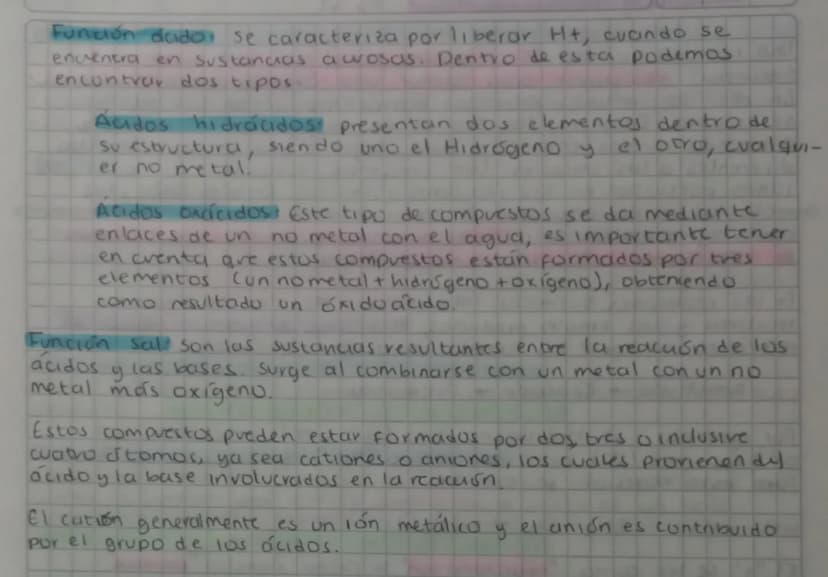 Función ácido: se caracteriza por liberar H+, cuando se
encuentra en sustancias acuosas. Dentro de esta podemos
encontrar dos tipos.
Ácidos hidrácidos: presentan dos elementos dentro de
su estructura, siendo uno el Hidrógeno y el otro, cualqui-
er no metal.
Ácidos oxácidos: Este tipo de compuestos se da mediante
enlaces de un no metal con el agua, es importante tener
en cuenta que estos compuestos están formados por tres
elementos (un no metal + hidrógeno + oxígeno), obteniendo
como resultado un óxido ácido.
Función sal: son las sustancias resultantes entre la reacción de los
ácidos y las bases. Surge al combinarse con un metal con un no
metal más oxígeno.
Estos compuestos pueden estar formados por dos, tres o inclusive
cuatro átomos, ya sea cationes o aniones, los cuales provienen del
ácido y la base involucrados en la reacción.
El catión generalmente es un ión metálico y el anión es contribuido
por el grupo de los ácidos.